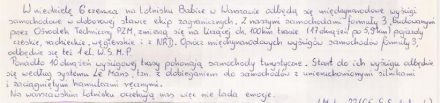 W niedzielę 6 czerwca na lotnisku Babice w Warszawie odbędą się międzynarodowe wyścigi
samochodowe w doborowej stawce ekip zagranicznych. Z naszymi samochodami formuły 3, budowanymi
przez Ośrodek Techniczny PZM, zmierzą się na liczącej ok. 100km trasie (17 okrążeń po 5,9 km) pojazdy
czeskie, radzieckie, węgierskie i z NRD. Oprócz międzynarodowych wyścigów samochodów formuły 3,
odbędzie się też I el. W.S.M.P.
Ponadto 10 okrążeń wyścigowej trasy pokonają samochody turystyczne. Start do ich wyścigu odbędzie
się według systemu Le Mans, tzn. z dobieganiem do samochodów z unieruchomionymi silnikami
i zaciągniętymi hamulcami ręcznymi.
Na warszawskim lotnisku oczekują nas więc nie lada emocje.